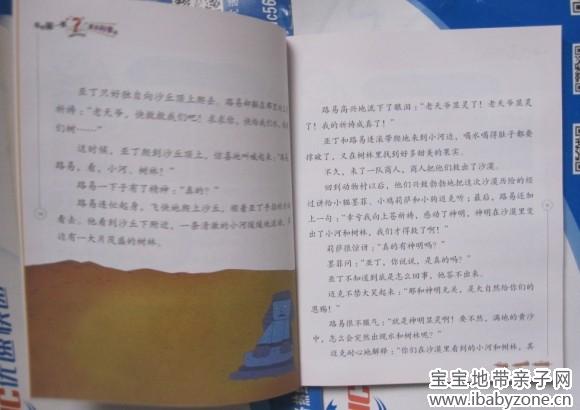 亚丁只好独自向沙丘顶上爬去。路易却躺在那里
祈祷：“老天爷，快救救我们吧！求求你，快给我们水，
们树……”
这时候，亚丁爬到沙丘顶上，惊喜地叫喊起来：“
路易，看，小河、树林！”
路易一下子有了精神：“真的？”
路易连忙起身，飞快地爬上沙丘，顺着亚丁手指的
看去。他看到沙丘下附近，一条清澈的小河缓缓地流
还有一大片茂盛的树林。
路易高兴地流下了眼泪：“老天爷显灵了！老天爷显灵
了！我的祈祷成真了！”
亚丁和路易连滚带爬地来到小河边，喝水喝得肚子都要
撑破了，又在树林里找到好多甜美的果实。
不久，来了一队商人，商人把他们救出了沙漠。
回到动物村以后，他们兴致勃勃地把这次沙漠历险的经
过讲给小猫墨菲、小鸡莉萨和小狗迈克听；最后，路易还加
上一句：“幸亏我向上苍祈祷，感动了神明，神明在沙漠里变
出了小河和树林，我们才得救。”
莉萨很惊讶：“真的有神明吗？”
墨菲问：“亚丁，你说说，是真的吗？”
亚丁不知道到底是怎么回事，他答不出来。
迈克不禁大笑起来：“那和神明无关，是大自然给你们的
恩赐！”
路易很不服气：“就是神明显灵啊！要不然，满地的黄沙
中，怎么会突然出现水和树林呢？”
迈克耐心地解释：“你们在沙漠里看到的小河和树林，其
宝宝地带亲子网
www.ibabyzone.cn